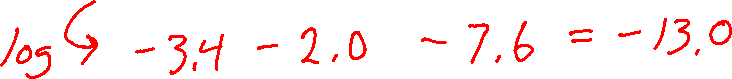 log ↪ -3.4 -2.0 -7.6 = -13.0